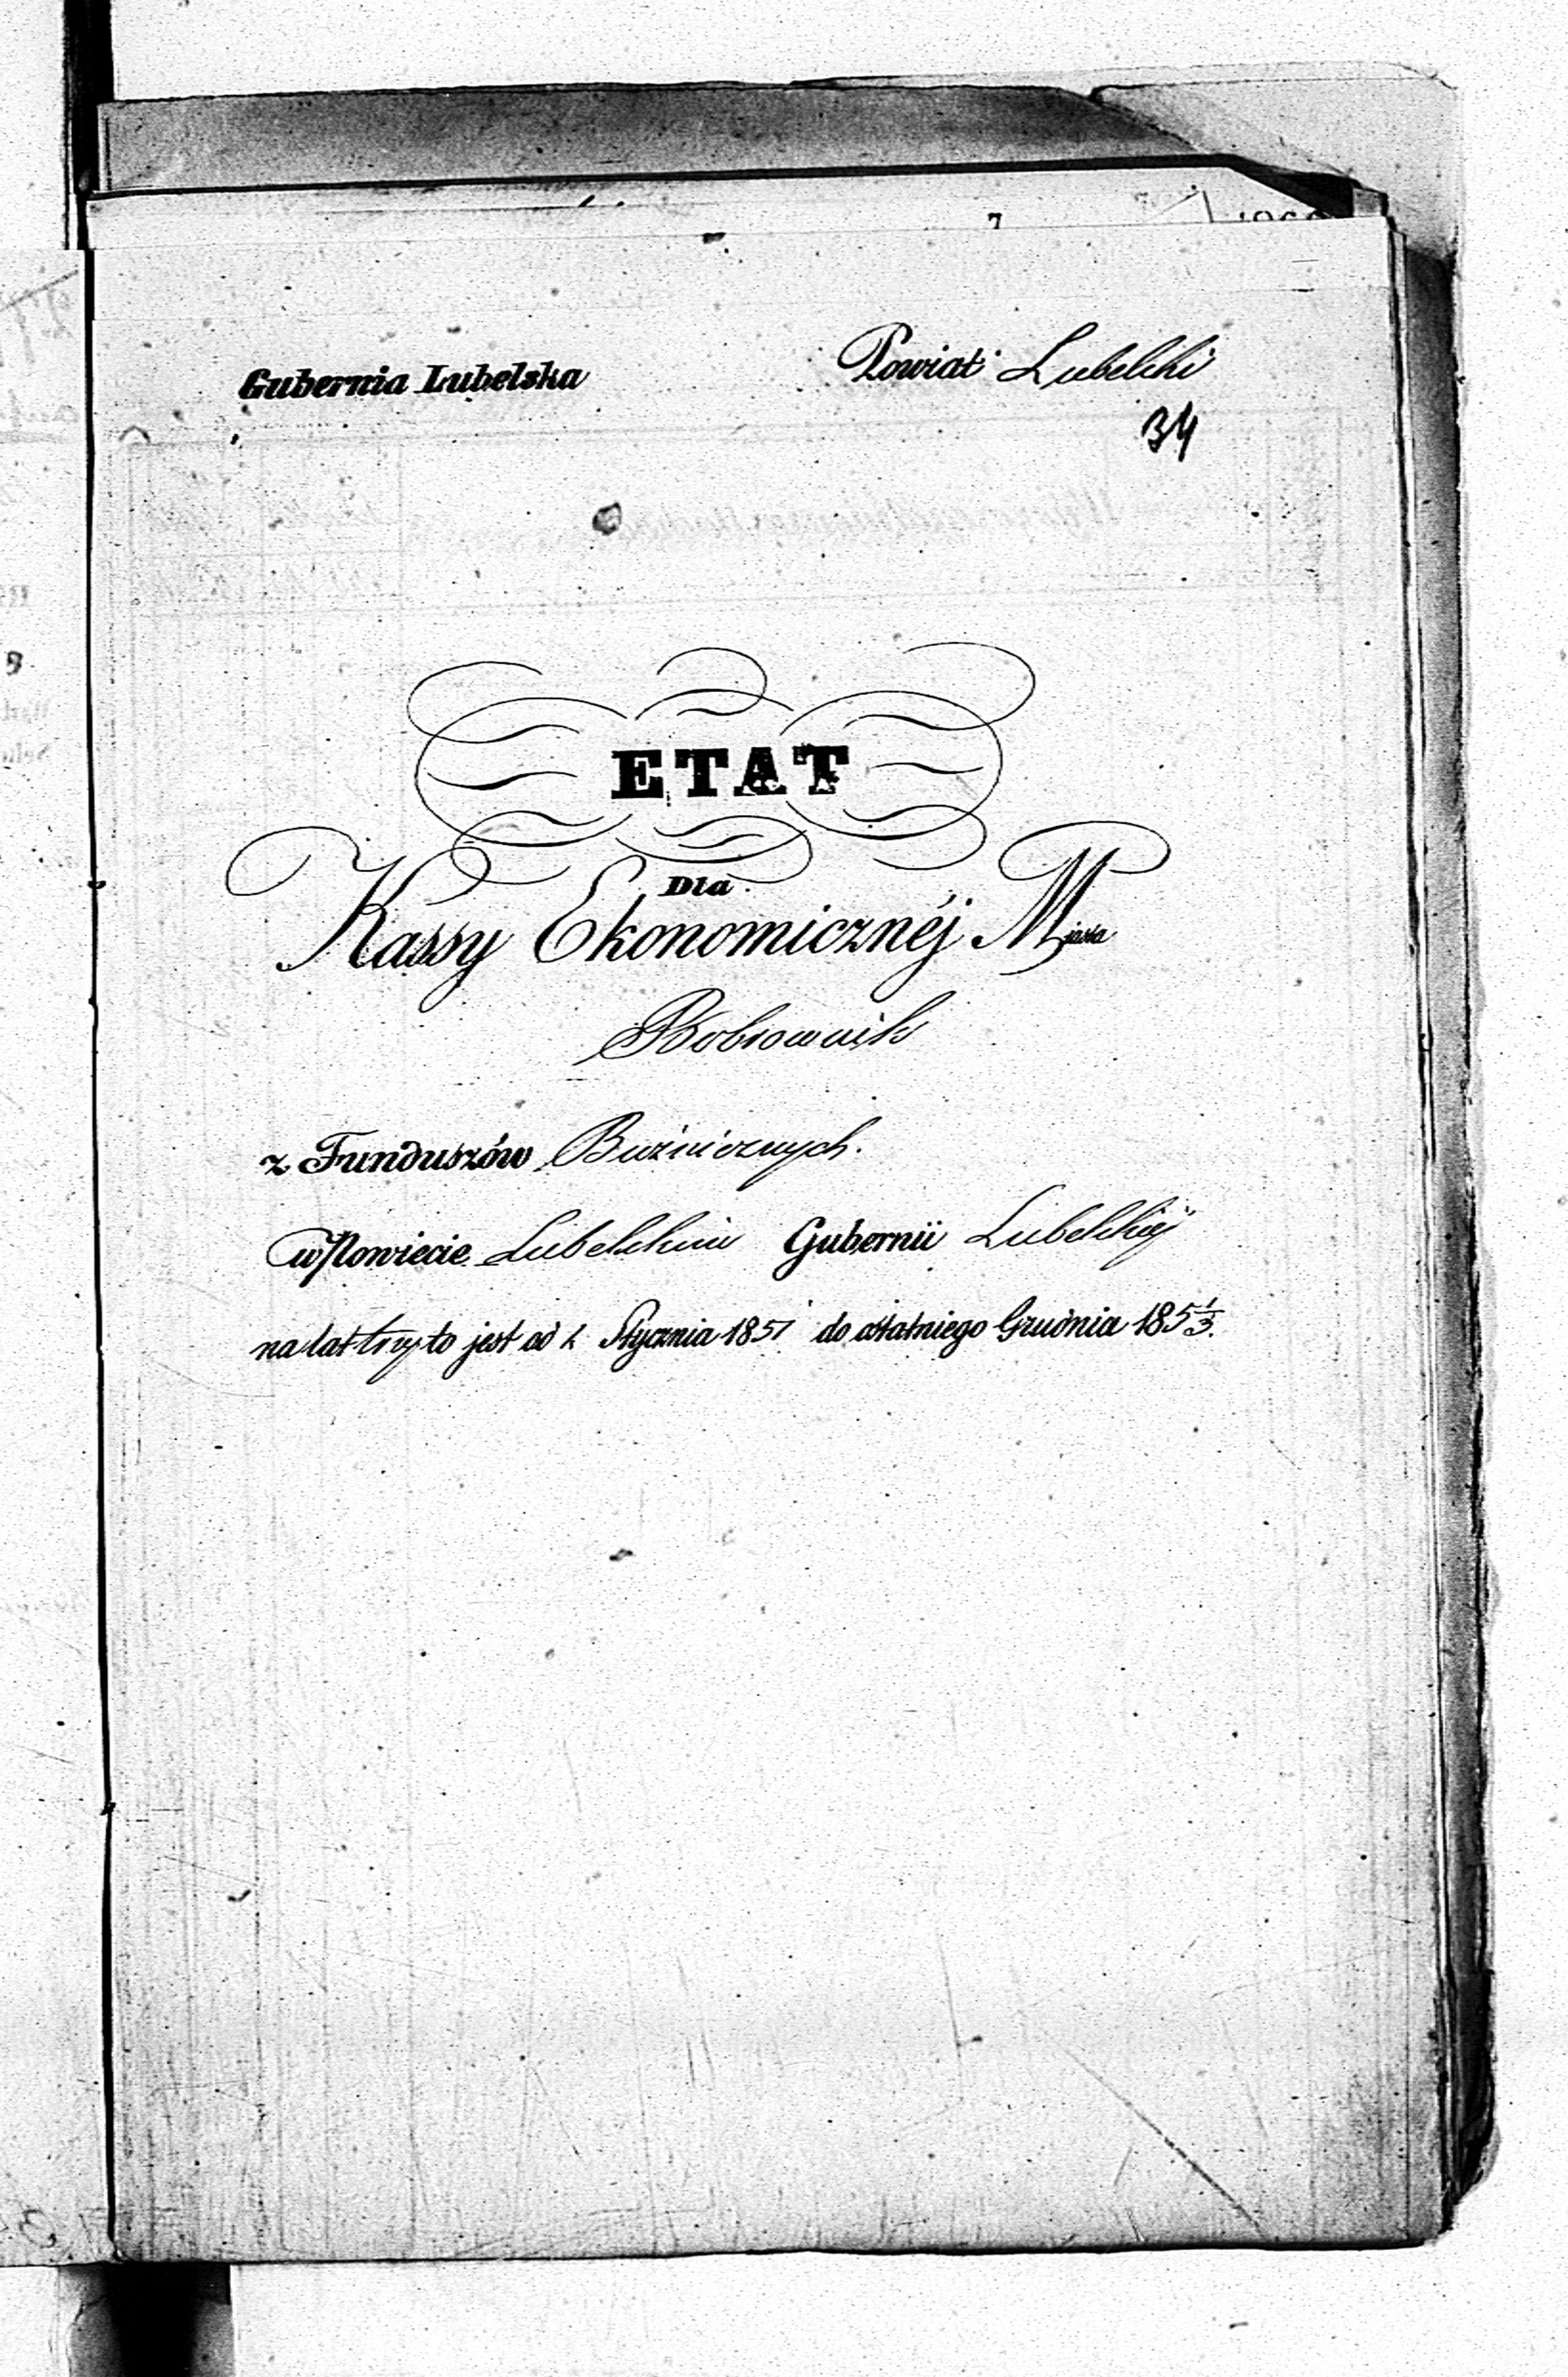 Gubernia Lubelska Powiat Lubelski
34
ETAT
Dla
Kassy Ekonomicznéj Miasta
Bobrownik
z Funduszów Buźnicznych.
w Powiecie Lubelskim Gubernii Lubelskiéj
na lat trzy to jest od 1 Stycznia 1851 do ostatniego Grudnia 185 1/3.